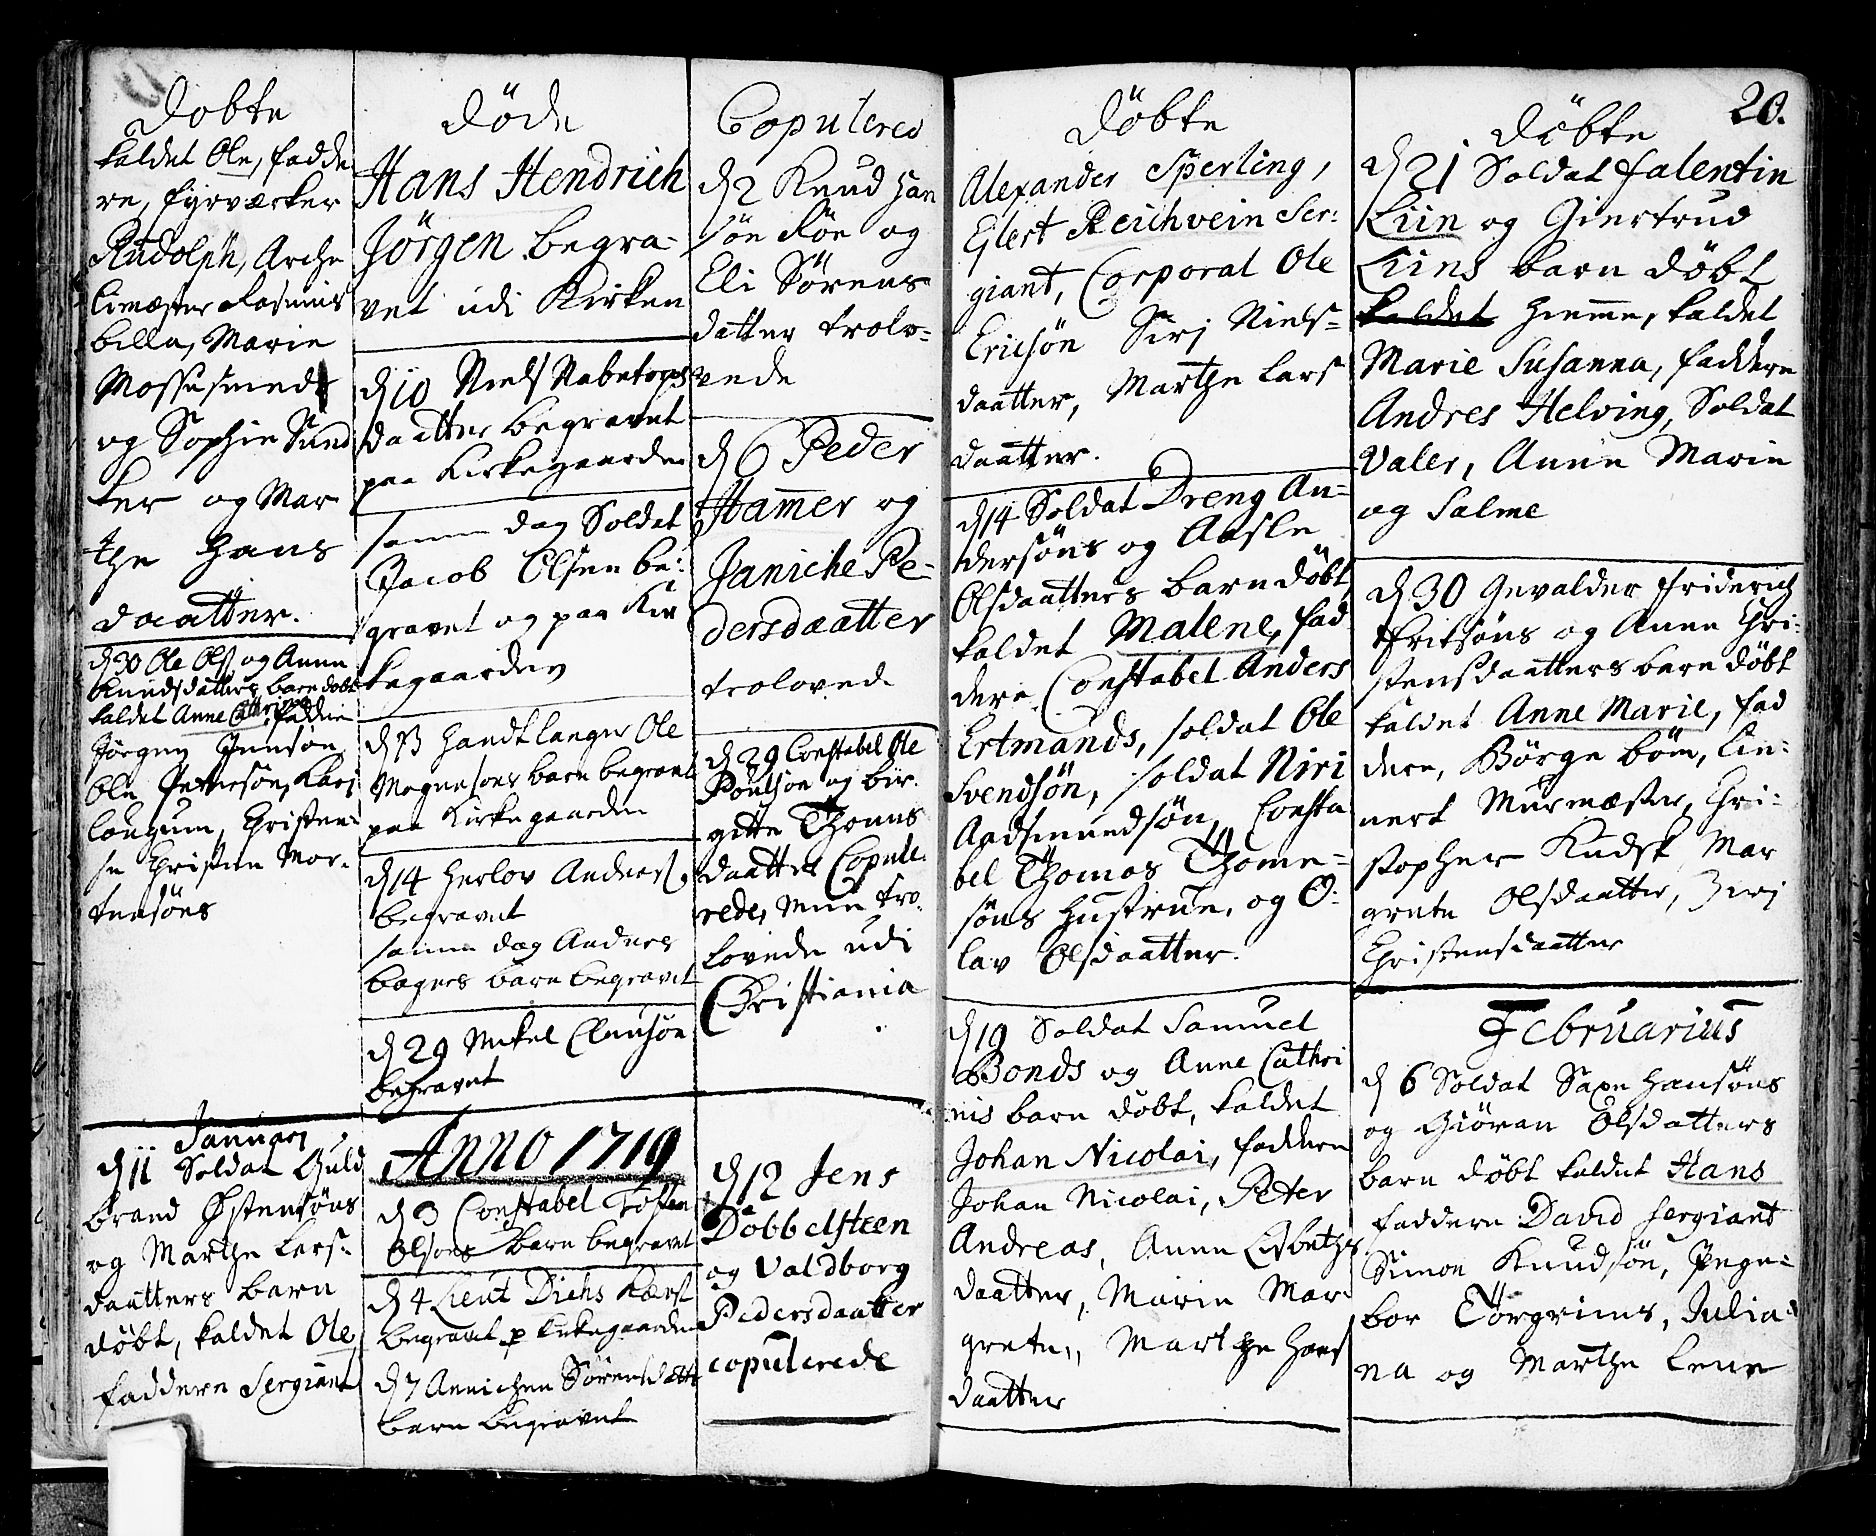 Döbte
kaldet Ole, fadde
re, fyrværker
Rudolph, Arche
limæster Rasmus
billa, Marie
Mossesmeds
og Sophie Sund
ker og Mar
the Hans
daatter.
d 30 Ole Ols. og Anne
Knudsdatters barn dobt
kaldet Anne Cathrina, faddere
Jörgen Jensön
Ole Petersön, Kari
Christen
se Christen Mor-
tensöns
Januarj
d 11 Soldat Guld
brand Östensöns
og Marthe Lars-
daatters barn
döbt, kaldet Ole,
faddere Sergiant
döde
Hans Hendrich
Jörgen begra-
vet udi Kirken
d 10 Niels
daatter begravet
paa Kirkegaarden
samme dag Soldat
Jacob Olsen be-
gravet og paa Kir
kegaarden
d 13 Handtlanger Ole
Mognesons barn begravet
paa Kirkegaarden
d 14 Herlov Anders.
begravet
samme dag Anders
bagers barn begravet
d 29 Mikel Clausön
begravet
Anno 1719
d 3 Constabel Tosten
Olsons barn begravet
d 4 Lieut Dichs
begravet p Kirkegaarden
d 7 Annichen Sörensdatt
barn begravet
Copulered
d 2 Knud Han
sön Röe og
Eli Sörens
datter trolo-
vede
d 6 Peder
Hamer og
Janiche Pe-
dersdaatter
trolovede
d 29 Constabel Ole
Poulson og bir-
gitte Thomas
daatter Copule-
rede, men tro-
lovede udi
Christiania
d 12 Jens
Döbbelsteen
og Valdborg
Pedersdaatter
copulerede
döbte
Alexander Sperling,
Ejlert Reichvein Ser-
giant, Corporal Ole
Ericsön Sirj Niels-
daatter, Marthe Lars
daatter.
d 14 Soldat Dreng An-
dersöns og Aasle
Olsdaatters barn döbt,
kaldet Malene, fad
dere Constabel Anders
Ertmands, soldat Ole
Svendsön, soldat Niri
Aadsmundsön, Consta
bel Thomas Thome-
söns Hustrue, og O-
lav Olsdaatter.
d 19 Soldat Samuel
Bonds og Anne Cathri
nis barn döbt, kaldet
Johan Nicolai, faddere
Johan Nicolai, Peter
Andreas, Anne Lisbethes
daatter, Marie Mar
grete, Marthe Hans
daatter
20.
döbte
d 21 Soldat falentin
Liin og Giertrud
Liins barn döbt
kaldet hiemme, kaldet
Marie Susanna, faddere
Andres Helving, Soldat
Valer, Anne Marie
og Salme
d 30 Gevalder Friderich
Fritsöns og Anne Chri-
stensdaatters barn döbt
kaldet Anne Marie, fad
dere, Börge böm, Lin-
nert Murmæster, Chri-
stopher Kudsk, Mar
grete Olsdaatter, Zirj
Christensdaatter
Februarius
d 6 Soldat Saxe Hansöns
og Giöran Olsdatters
barn döbt kaldet Hans
faddere David Sergiant
Simon Knudsön, Inge-
bor Törgrims, Julia-
na og Marthe Lene